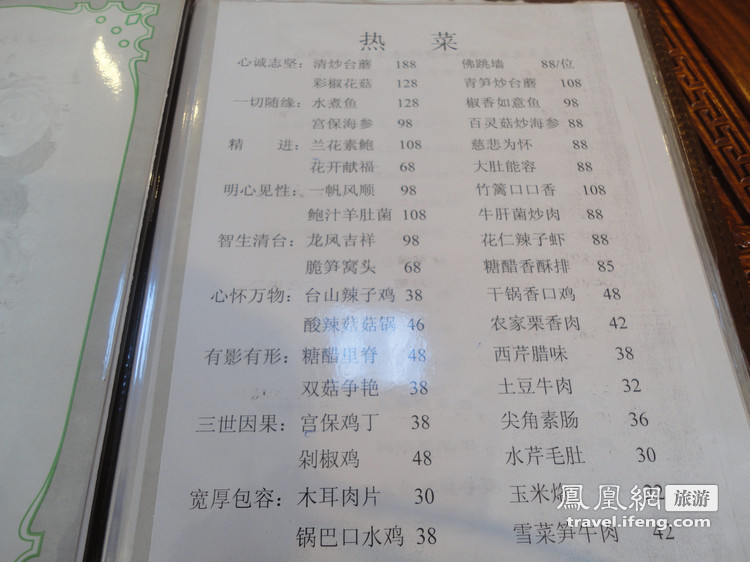 热 菜
心诚志坚：清炒台蘑 188 佛跳墙 88/位
彩椒花菇 128 青笋炒台蘑 108
一切随缘：水煮鱼 128 椒香如意鱼 98
宫保海参 98 百灵菇炒海参 88
精 进：兰花素鲍 108 慈悲为怀 88
花开献福 68 大肚能容 88
明心见性：一帆风顺 98 竹篱口口香 108
鲍汁羊肚菌 108 牛肝菌炒肉 88
智生清台：龙凤吉祥 98 花仁辣子虾 88
脆笋窝头 68 糖醋香酥排 85
心怀万物：台山辣子鸡 38 干锅香口鸡 48
酸辣菇菇锅 46 农家栗香肉 42
有影有形：糖醋里脊 48 西芹腊味 38
双菇争艳 38 土豆牛肉 32
三世因果：宫保鸡丁 38 尖角素肠 36
剁椒鸡 48 水芹毛肚 30
宽厚包容：木耳肉片 30 玉米
锅巴口水鸡 38 雪菜笋牛肉 42
鳳凰網 旅游
travel.ifeng.com